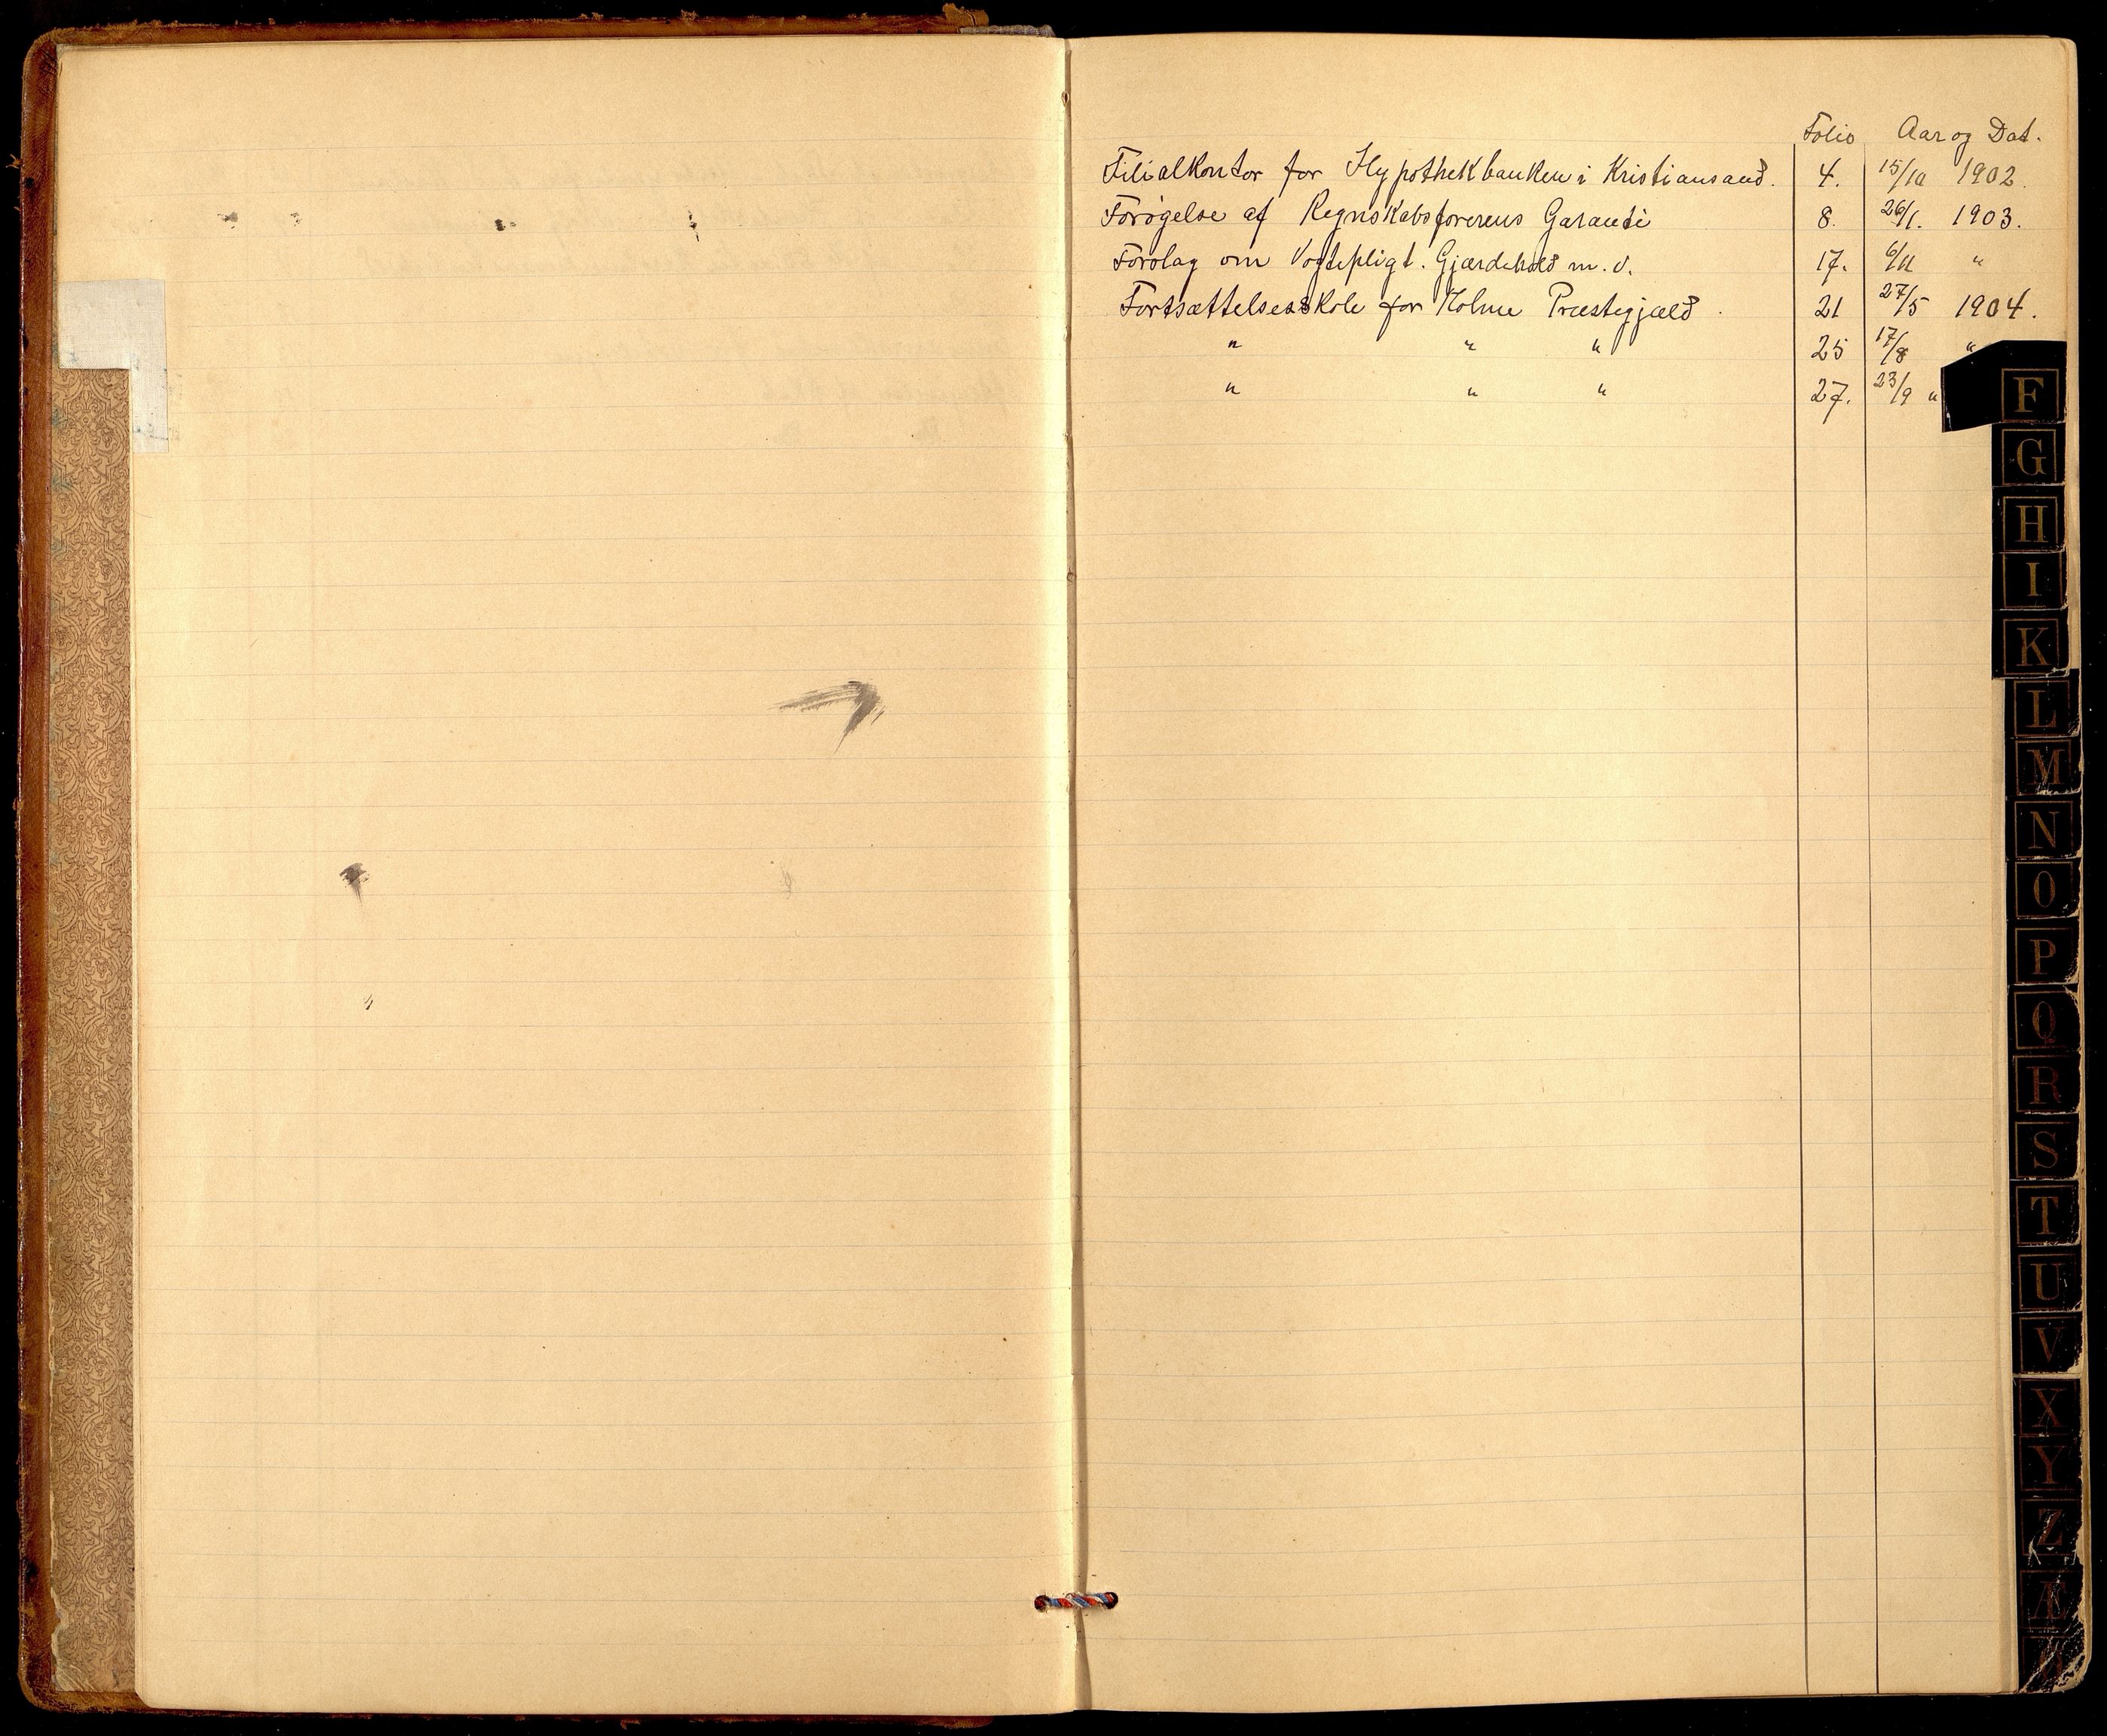 Folio Aar og Dat.
Filialkontor for Hypothekbanken i Kristiansand. 4. 15/10 1902.
Forøgelse af Regnskabsførerens Garanti 8. 26/1. 1903.
Forslag om Vogtepligt. Gjærdehold m. v. 17. 6/11 "
Fortsættelsesskole for Holme Præstegjæld. 21 27/5 1904.
" " " 25 17/8 "
" " " 27. 23/9 "
F
G
H
I
K
L
M
N
O
P
Q
R
S
T
U
V
X
Y
Z
Æ